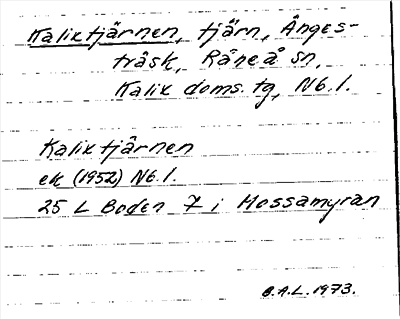 Kaliktjärnen, tjärn, Ånges-
träsk, Råneå sn,
Kalix doms. tg, Nb. l.
Kaliktjärnen
ek (1952) Nb. l.
25 L Boden 7 i Mossamyran
B.A.L. 1973.